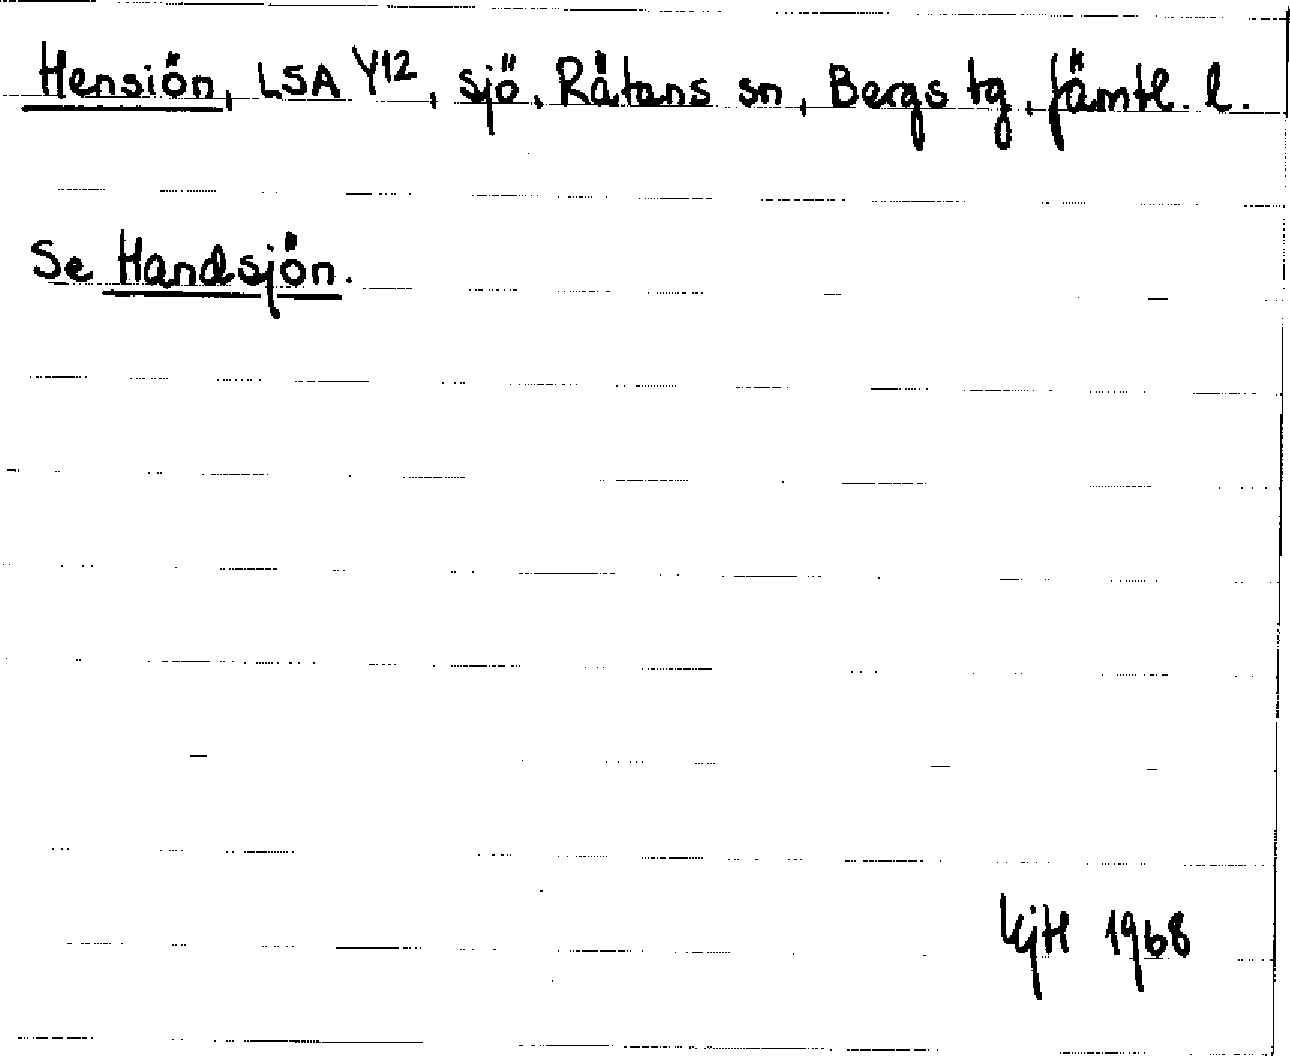 Hensiön, LSA Y12, sjö, Råtans sn, Bergs tg, Jämtl. l.
Se Handsjön.
KjH 1968